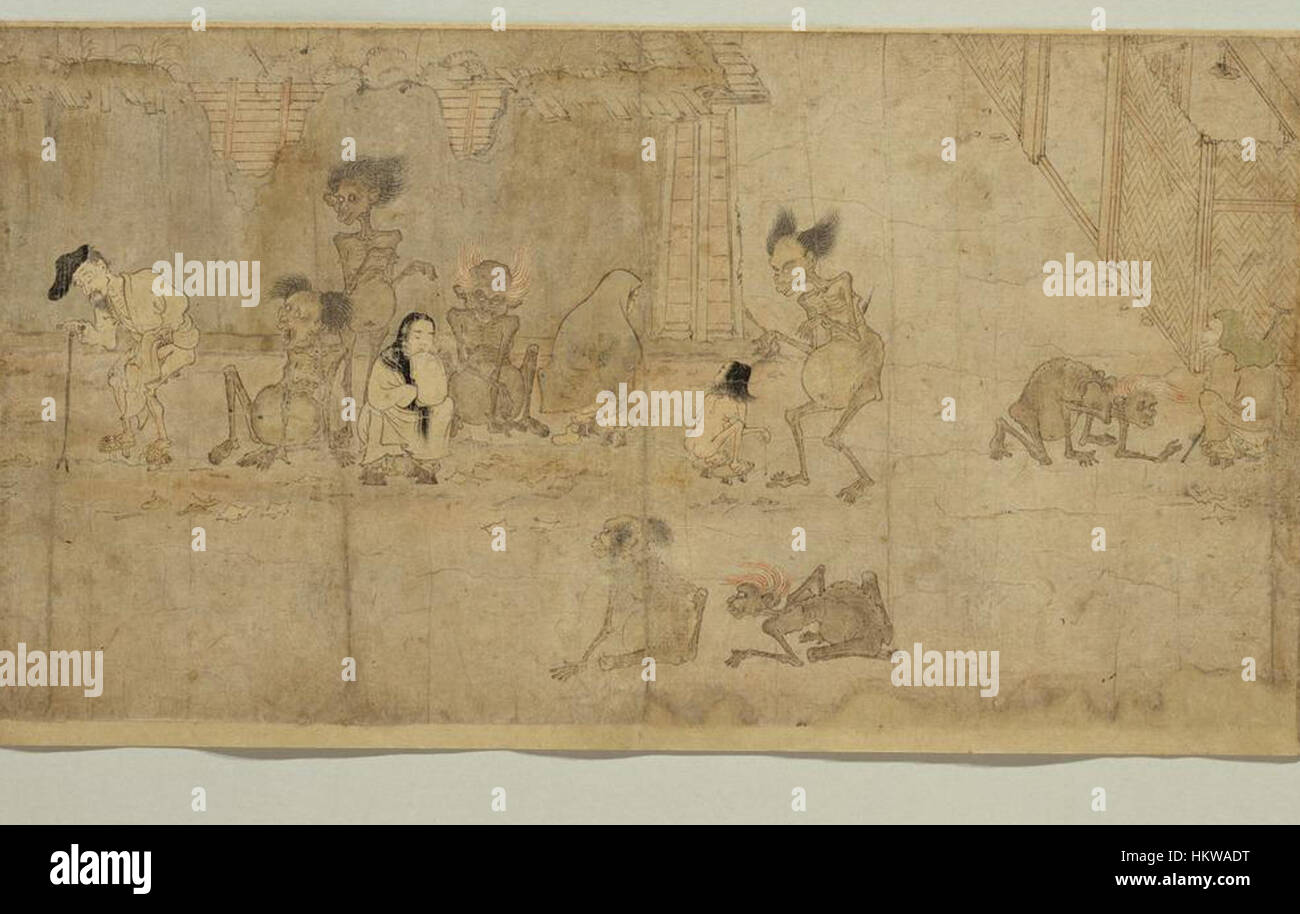 alamy
alamy
alamy
a a a a
alamy
Image ID: HKWADT
www.alamy.com